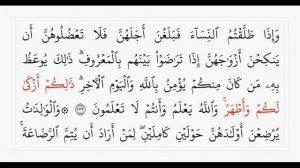 وَإِذَا طَلَّقْتُمُ ٱلنِّسَآءَ فَبَلَغْنَ أَجَلَهُنَّ فَلَا تَعْضُلُوهُنَّ أَن
يَنكِحْنَ أَزْوَٰجَهُنَّ إِذَا تَرَٰضَوْا۟ بَيْنَهُم بِٱلْمَعْرُوفِ ۗ ذَٰلِكَ يُوعَظُ
بِهِۦ مَن كَانَ مِنكُمْ يُؤْمِنُ بِٱللَّهِ وَٱلْيَوْمِ ٱلْـَٔاخِرِ ۗ ذَٰلِكُمْ أَزْكَىٰ
لَكُمْ وَأَطْهَرُ ۗ وَٱللَّهُ يَعْلَمُ وَأَنتُمْ لَا تَعْلَمُونَ ٢٣٢ ۞ وَٱلْوَٰلِدَٰتُ
يُرْضِعْنَ أَوْلَٰدَهُنَّ حَوْلَيْنِ كَامِلَيْنِ ۖ لِمَنْ أَرَادَ أَن يُتِمَّ ٱلرَّضَاعَةَ ۚ